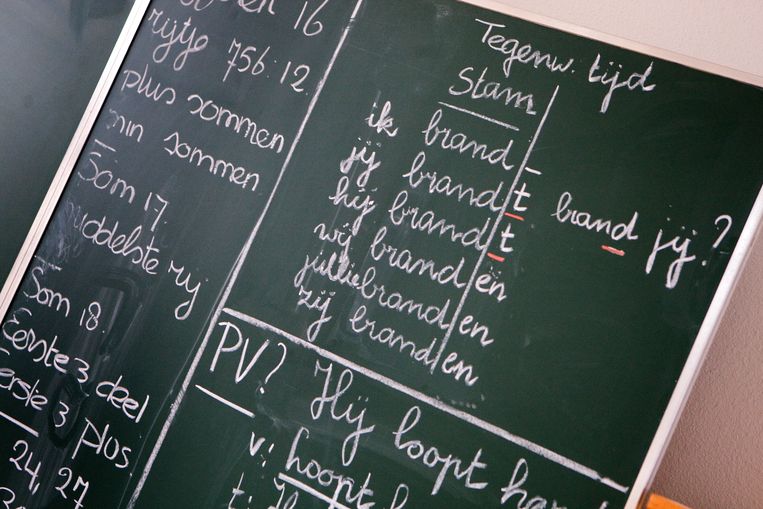 16
rijtje 756:12
plus sommen
min sommen
Som 17.
middelste rij
Som 18.
Eerste 3 deel
Eerste 3 plus
24, 27
Tegenw. tijd
Stam
ik brand -
jij brand t brand jij?
hij brand t
wij brand en
jullie brand en
zij brand en
PV? Hij loopt har
v: hoopt h
t: